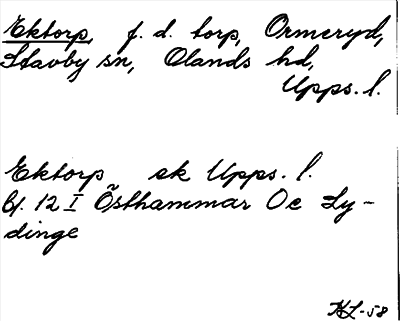 Ektorp, f. d. torp, Ormeryd,
Stavby sn, Olands hd,
Upps. l.
Ektorp ek Upps. l.
bl. 12 I Östhammar Oc Ly-
dinge
KL-58